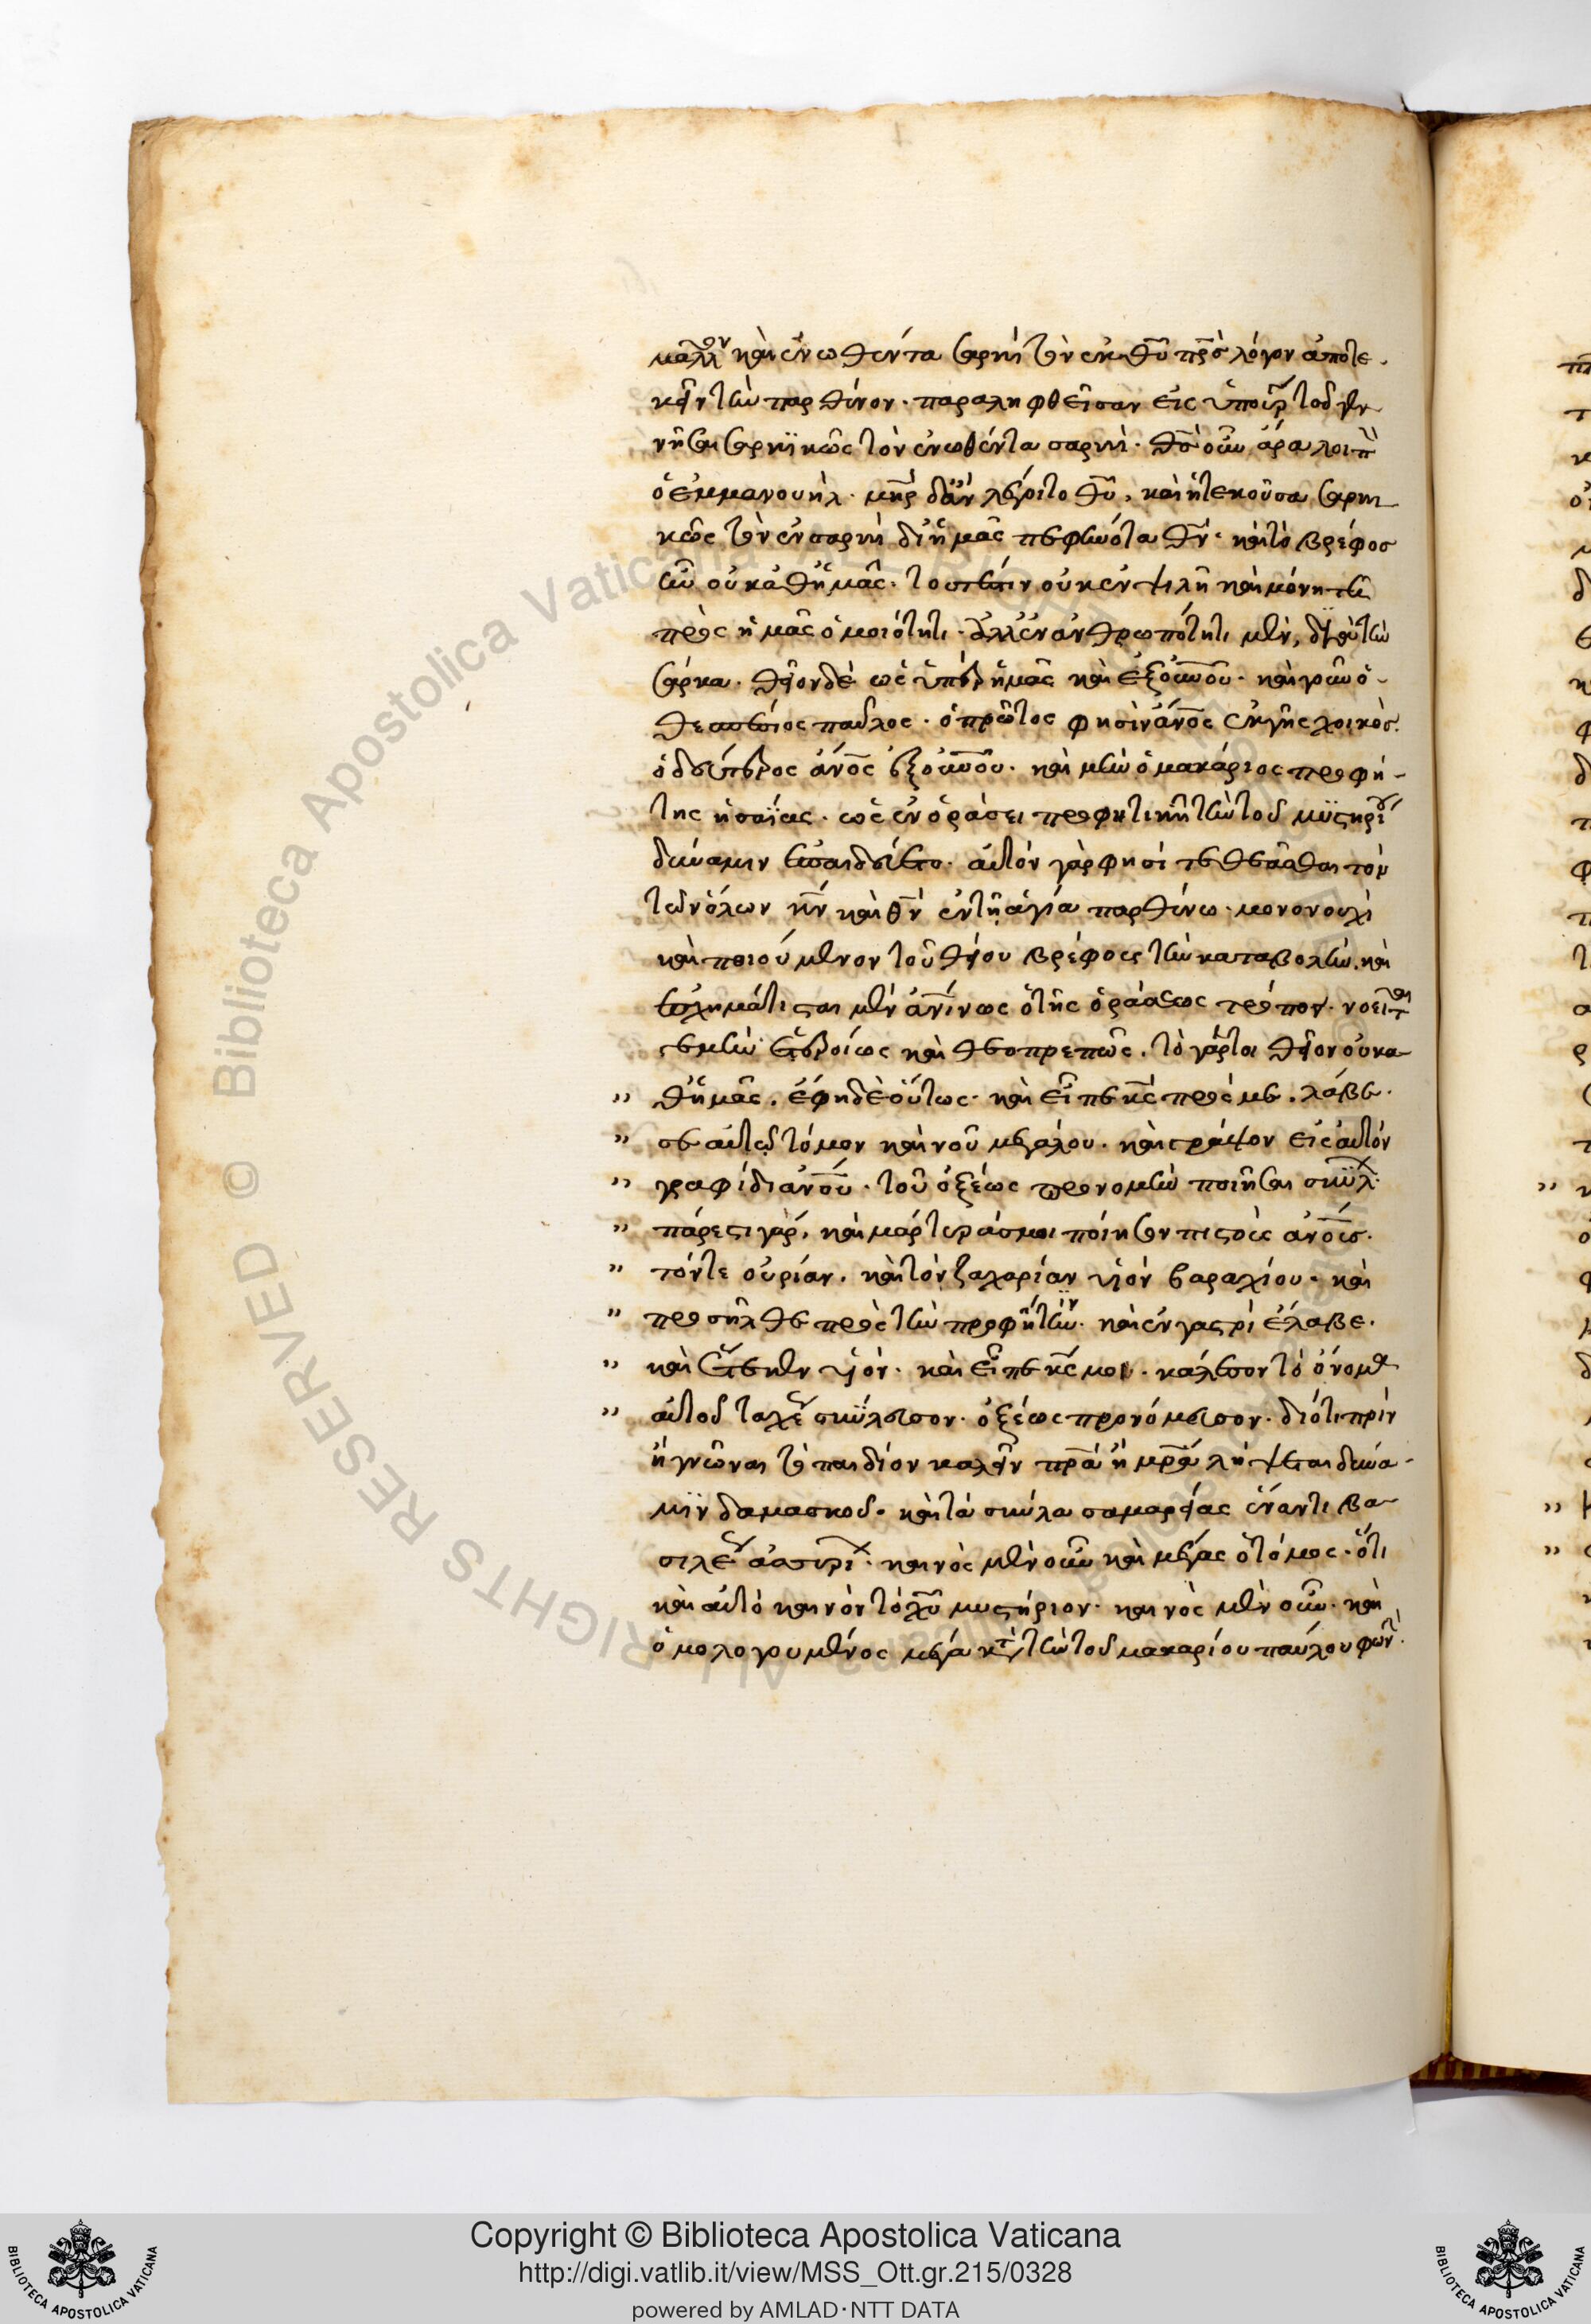 μᾶλλον καὶ ἑνωθέντα σαρκὶ τὸν ἐκ θ̅υ̅ π̅ρ̅ς̅ λόγον ἀποτε
κεῖν τὴν παρθένον. παραληφθεῖσαν εἰς ὑπουρ τοῦ γεν
νῆσαι σαρκϊκῶς τὸν ἑνωθέντα σαρκί. θ̅ς̅ οὖν ἄρα λοιπ
ὁ ἐμμανουήλ. μ̅η̅ρ̅ δ'ἂν λέγοιτο θ̅υ̅, καὶ ἡ τεκοῦσα σαρκι
κῶς τὸν ἐν σαρκὶ δι' ἡμᾶς πεφηνότα θ̅ν̅. καὶ τὸ βρέφος
ἦν οὐ καθ' ἡμᾶς. τουτέστιν οὐκ ἐν ψιλῆ καὶ μόνη τῆ
πρὸς ἡμᾶς ὁμοιότητι. ἀλλ' ἐν ἀνθρωπότητι μὲν, διὰ τὴν
σάρκα. θεῖον δὲ ὡς ὑπὲρ ἡμᾶς καὶ ἐξ ο̅υ̅ν̅ο̅υ̅. καὶ γοῦν ὁ
θεσπέσιος παῦλος. ὁ πρῶτος φησὶν ἄ̅ν̅ο̅ς̅ ἐκ γῆς χοικὸς.
ὁ δεύτερος ἄ̅ν̅ο̅ς̅ ἐξ ο̅υ̅ν̅ο̅υ̅. καὶ μὴν ὁ μακάριος προφή
της ἡσαΐας. ὡς ἐν ὁράσει προφητικῆ τὴν τοῦ μϋστηρί
δύναμιν ἐπαιδεύετο. αὐτὸν γὰρ φησί τεθεᾶσθαι τὸν
τῶν ὅλων κ̅ν̅ καὶ θ̅ν̅ ἐν τῆ ἁγία παρθένω. μονονουχὶ
καὶ ποιούμενον τοῦ θείου βρέφους τὴν καταβολὴν. καὶ
ἐσχημάτισται μὲν ἀ̅ν̅ί̅νως ὁ τῆς ὁράσεως τρόπος. νοεῖται
γε μὴν ἑτεροίως καὶ θεοπρεπῶς. τὸ γάρ τοι θεῖον οὐ κα
" θ' ἡμᾶς. ἔφη δὲ οὕτως. καὶ εἶπε κ̅ς̅ πρὸς με. λάβε
" σεαυτῶ τόμον καινοῦ μεγάλου. καὶ γράψον εἰς αὐτὸν
" γραφίδι ἀ̅ν̅ο̅υ̅. τοῦ ὀξέως προνομὴν ποιῆσαι σκϋλ
" πάρεστι γάρ. καὶ μάρτυράς μοι ποίησον πιστοὺς ἀ̅ν̅ο̅υ̅ς̅.
" τόν τε οὐρίαν. καὶ τὸν ζαχαρίαν υἱὸν βαραχίου. καὶ
" προσῆλθε πρὸς τὴν προφήτιν. καὶ ἐν γαστρὶ ἔλαβε.
" καὶ ἔτεκεν υἱόν. καὶ εἶπε κ̅ς̅ μοι. κάλεσον τὸ ὄνομα
" αὐτοῦ ταχέ σκΰλευσον. ὀξέως προνόμευσον. διότι πρὶν
ἢ γνῶναι τὸ παιδίον καλεῖν π̅ρ̅α̅ ἢ μ̅ρ̅α̅ λήψεται δύνα
μϊν δαμασκοῦ. καὶ τὰ σκύλα σαμαρείας ἔναντι βα
σιλέ ἀσσυρί. καινὸς μὲν οὖν καὶ μέγας ὁ τόμος. ὅτι
καὶ αὐτὸ καινὸν τὸ χ̅υ̅ μυστήριον. καινὸς μὲν οὖν. καὶ
ὁμολογουμένος μέγα κτ τὴν τοῦ μακαρίου παύλου φων